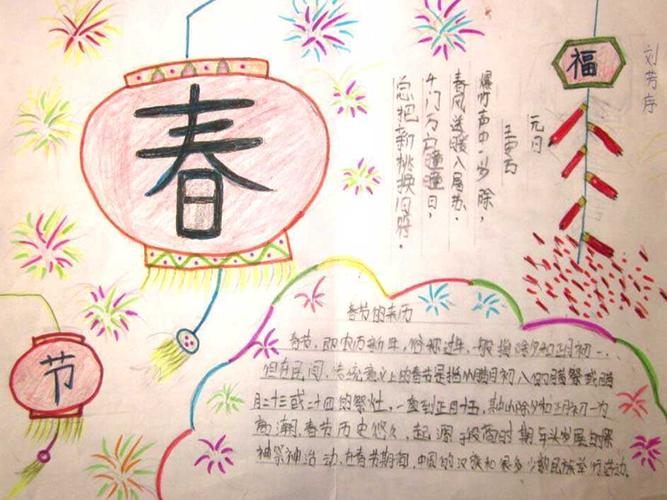 春
节
福
刘芳序
元日
王安石
爆竹声中一岁除，
春风送暖入屠苏.
千门万户曈曈日，
总把新桃换旧符.
春节的来历
春节，即农历新年，俗称过年，一般指除夕和正月初一.
但在民间，传统意义上的春节是指从腊月初八的腊祭或腊
月二十三或二十四的祭灶，一直到正月十五，其中以除夕和正月初一为
高潮.春节历史悠久，起源于殷商时期年头岁尾的祭
神祭活动，在春节期间，中国的汉族和很多少数民族举行活动.